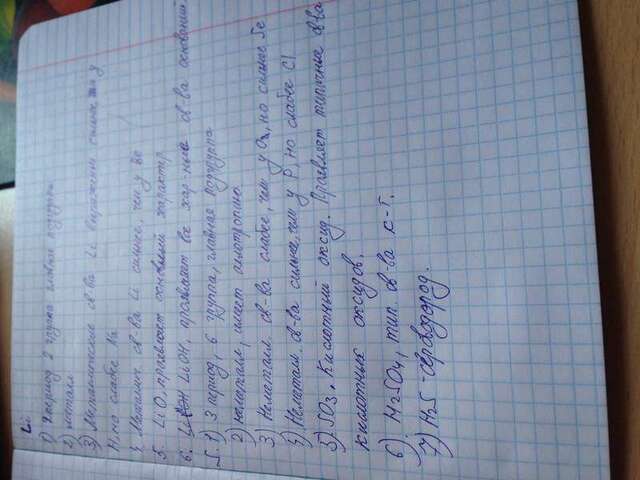 Li
1) 2 период 2 группа главная подгруппа
2) металл
3) Металлические св-ва Li выражены сильнее у
H, но слабее Na
4. Металлич. св-ва Li сильнее, чем у Be
5. LiO, проявляет основный характер
6. LiOH, проявляет все хар-ные св-ва оснований.
S. 1) 3 период, 6 группа, главная подгруппа
2) неметалл, имеет аллотропию.
3) Неметалл. св-ва слабее, чем у O2, но сильнее Se
4) Неметалл. св-ва сильнее, чем у P, но слабее Cl
5) SO3. Кислотный оксид. Проявляет типичные св-ва
кислотных оксидов.
6) H2SO4, тип. св-ва к-т.
7) H2S - сероводород.